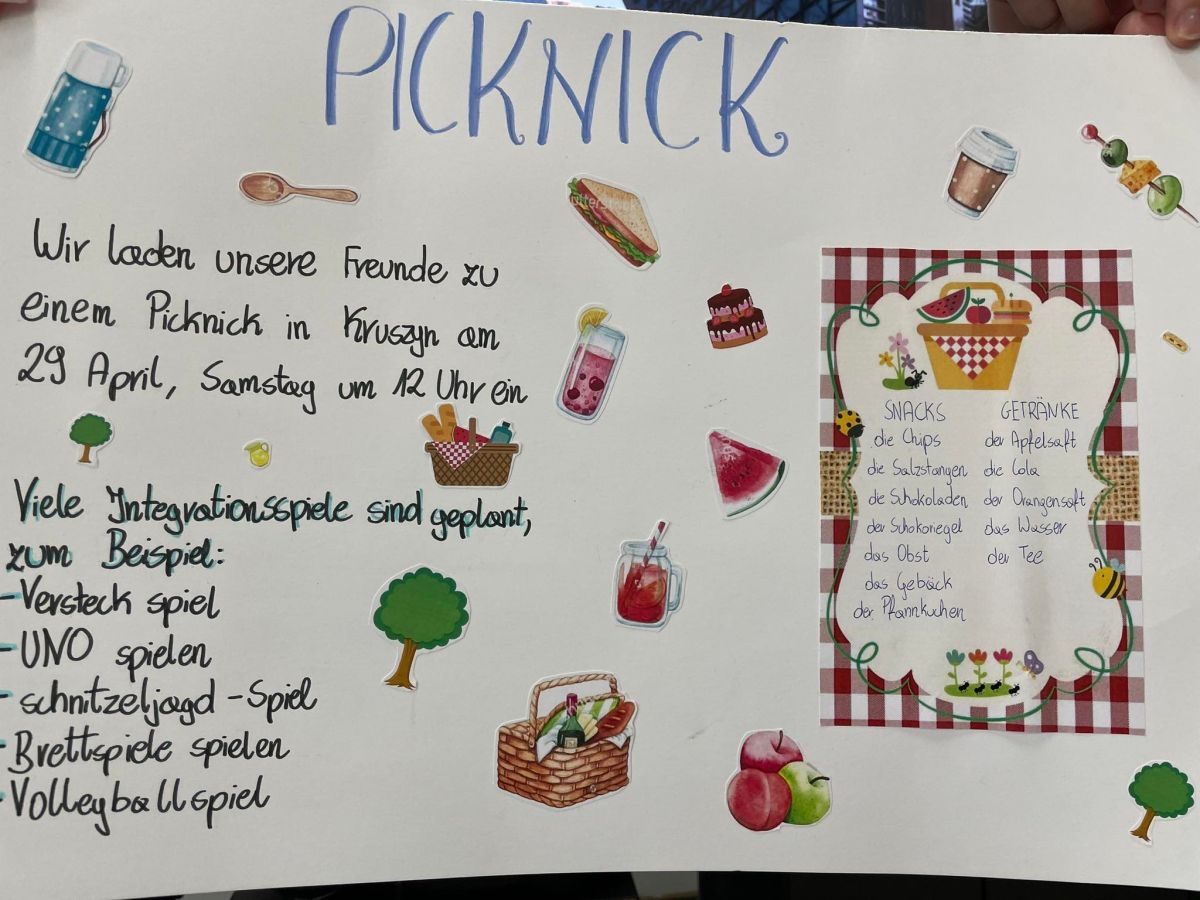 PICKNICK
Wir laden unsere Freunde zu
einem Picknick in Kruszyn am
29 April, Samstag um 12 Uhr ein
Viele Integrationsspiele sind geplant,
zum Beispiel:
-Versteck spiel
-UNO spielen
-schnitzeljagd-Spiel
-Brettspiele spielen
-Volleyballspiel
SNACKS
die Chips
die Salzstangen
die Schokoladen
der Schokoriegel
das Obst
das Gebäck
der Pfannkuchen
GETRÄNKE
der Apfelsaft
die Cola
der Orangensaft
das Wasser
der Tee